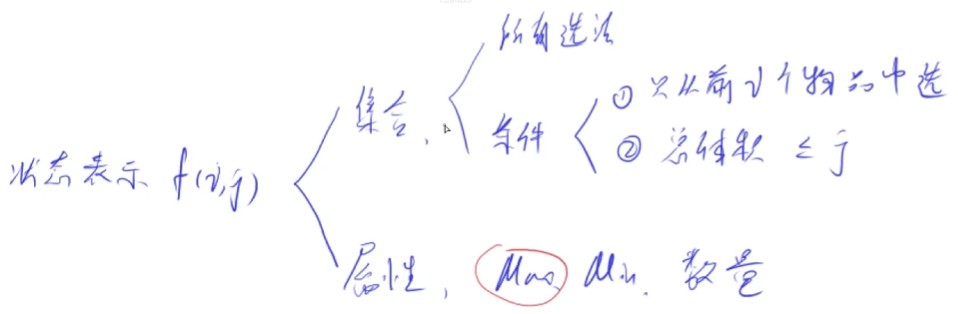 所有选法
① 只从前i个物品中选
集合、
条件
② 总体积 ≤ j
状态表示 f(i,j)
属性、Max、Min、数量